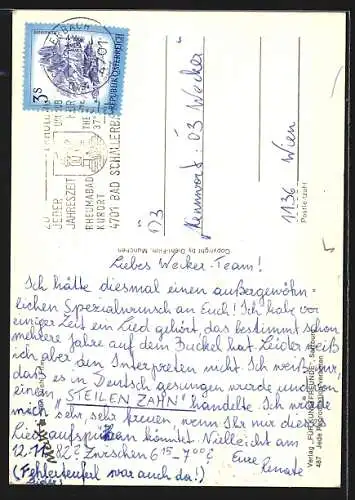 3S
REPUBLIK ÖSTERREICH
4701
JEDER
JAHRESZEIT
RHEUMABAD
KURORT
4701 BAD SCHALLERBACH
Ö3
Kennwort: Ö3 Wecker
1136 Wien
Postleitzahl
Copyright by Diehl-Film, München
Liebes Wecker-Team!
Ich hätte diesmal einen außergewöhn-
lichen Spezialwunsch an Euch! Ich habe vor
einiger Zeit ein Lied gehört, das bestimmt schon
mehrere Jahre auf dem Buckel hat. Leider weiß
ich aber den Interpreten nicht. Ich weiß nur,
daß es in Deutsch gesungen wurde und von
einem "STEILEN ZAHN" handelte. Ich würde
mich sehr, sehr freuen, wenn Ihr nur dieses
Lied aufspüren könntet. Vielleicht am
12.11.82? Zwischen 6 15 - 7 00?
Eure
Renate
(Fehlerteufel war auch da!)